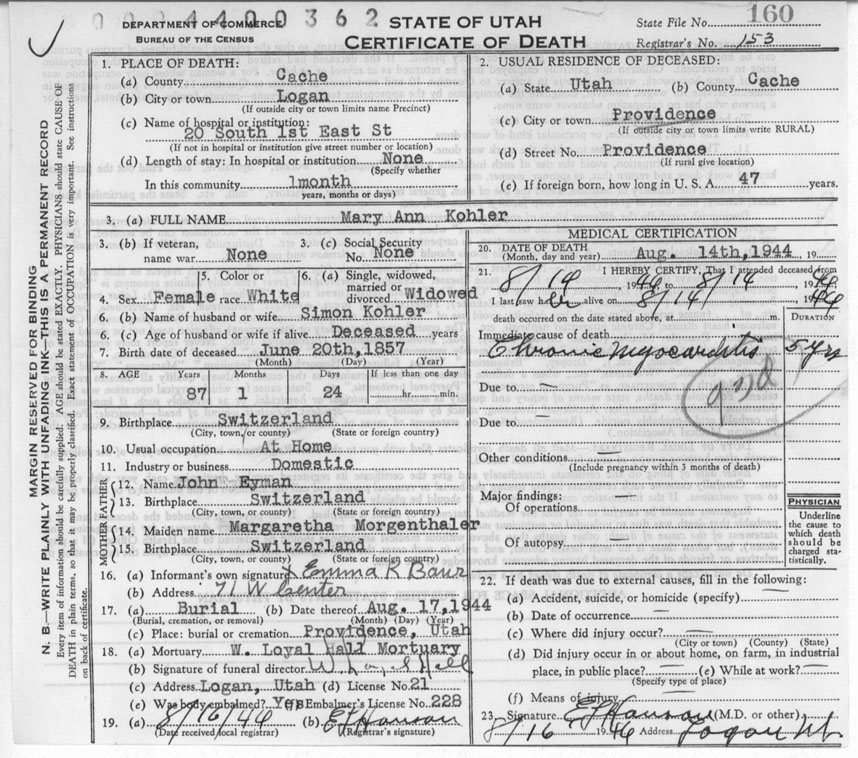 0004400362
DEPARTMENT OF COMMERCE
BUREAU OF THE CENSUS
STATE OF UTAH
CERTIFICATE OF DEATH
State File No. 160
Registrar's No. 153
MARGIN RESERVED FOR BINDING
N. B.—WRITE PLAINLY WITH UNFADING INK—THIS IS A PERMANENT RECORD
Every item of information should be carefully supplied. AGE should be stated EXACTLY. PHYSICIANS should state CAUSE OF
DEATH in plain terms, so that it may be properly classified. Exact statement of OCCUPATION is very important. See instructions
on back of certificate.
1. PLACE OF DEATH:
(a) County Cache
(b) City or town Logan
(If outside city or town limits name Precinct)
(c) Name of hospital or institution:
20 South 1st East St
(If not in hospital or institution give street number or location)
(d) Length of stay: In hospital or institution None
(Specify whether
In this community 1month
years, months or days)
2. USUAL RESIDENCE OF DECEASED:
(a) State Utah (b) County Cache
(c) City or town Providence
(If outside city or town limits write RURAL)
(d) Street No. Providence
(If rural give location)
(e) If foreign born, how long in U. S. A. 47 years.
3. (a) FULL NAME Mary Ann Kohler
3. (b) If veteran, name war None
3. (c) Social Security No. None
4. Sex Female
5. Color or race White
6. (a) Single, widowed, married or divorced Widowed
6. (b) Name of husband or wife Simon Kohler
6. (c) Age of husband or wife if alive Deceased years
7. Birth date of deceased June 20th, 1857
(Month) (Day) (Year)
8. AGE Years Months Days If less than one day
87 1 24 hr. min.
9. Birthplace Switzerland
(City, town, or county) (State or foreign country)
10. Usual occupation At Home
11. Industry or business Domestic
FATHER
12. Name John Eyman
13. Birthplace Switzerland
(City, town, or county) (State or foreign country)
MOTHER
14. Maiden name Margaretha Morgenthaler
15. Birthplace Switzerland
(City, town, or county) (State or foreign country)
16. (a) Informant's own signature X Emma K Baur
(b) Address 71 W Center
17. (a) Burial (b) Date thereof Aug. 17, 1944
(Burial, cremation, or removal) (Month) (Day) (Year)
(c) Place: burial or cremation Providence, Utah
18. (a) Mortuary W. Loyal Hall Mortuary
(b) Signature of funeral director W. Loyal Hall
(c) Address Logan, Utah (d) License No. 21
(e) Was body embalmed? Yes Embalmer's License No. 228
19. (a) 8/16/44 (b) E J Hanson
(Date received local registrar) (Registrar's signature)
MEDICAL CERTIFICATION
20. DATE OF DEATH
(Month, day and year) Aug. 14th, 1944, 19
21. I HEREBY CERTIFY, That I attended deceased from
8/14, 1944 to 8/14, 1944
I last saw her alive on 8/14/ 44
death occurred on the date stated above, at m.
DURATION
Immediate cause of death
Chronic Myocarditis 5 yrs
Due to —
Due to —
92d
Other conditions —
(Include pregnancy within 3 months of death)
Major findings:
Of operations —
Of autopsy —
PHYSICIAN
Underline
the cause to
which death
should be
charged sta-
tistically.
22. If death was due to external causes, fill in the following:
(a) Accident, suicide, or homicide (specify) —
(b) Date of occurrence —
(c) Where did injury occur? —
(City or town) (County) (State)
(d) Did injury occur in or about home, on farm, in industrial
place, in public place? — (e) While at work? —
(Specify type of place)
(f) Means of injury —
23. Signature E J Hanson (M.D. or other)
8/16 1944 Address Logan Ut.